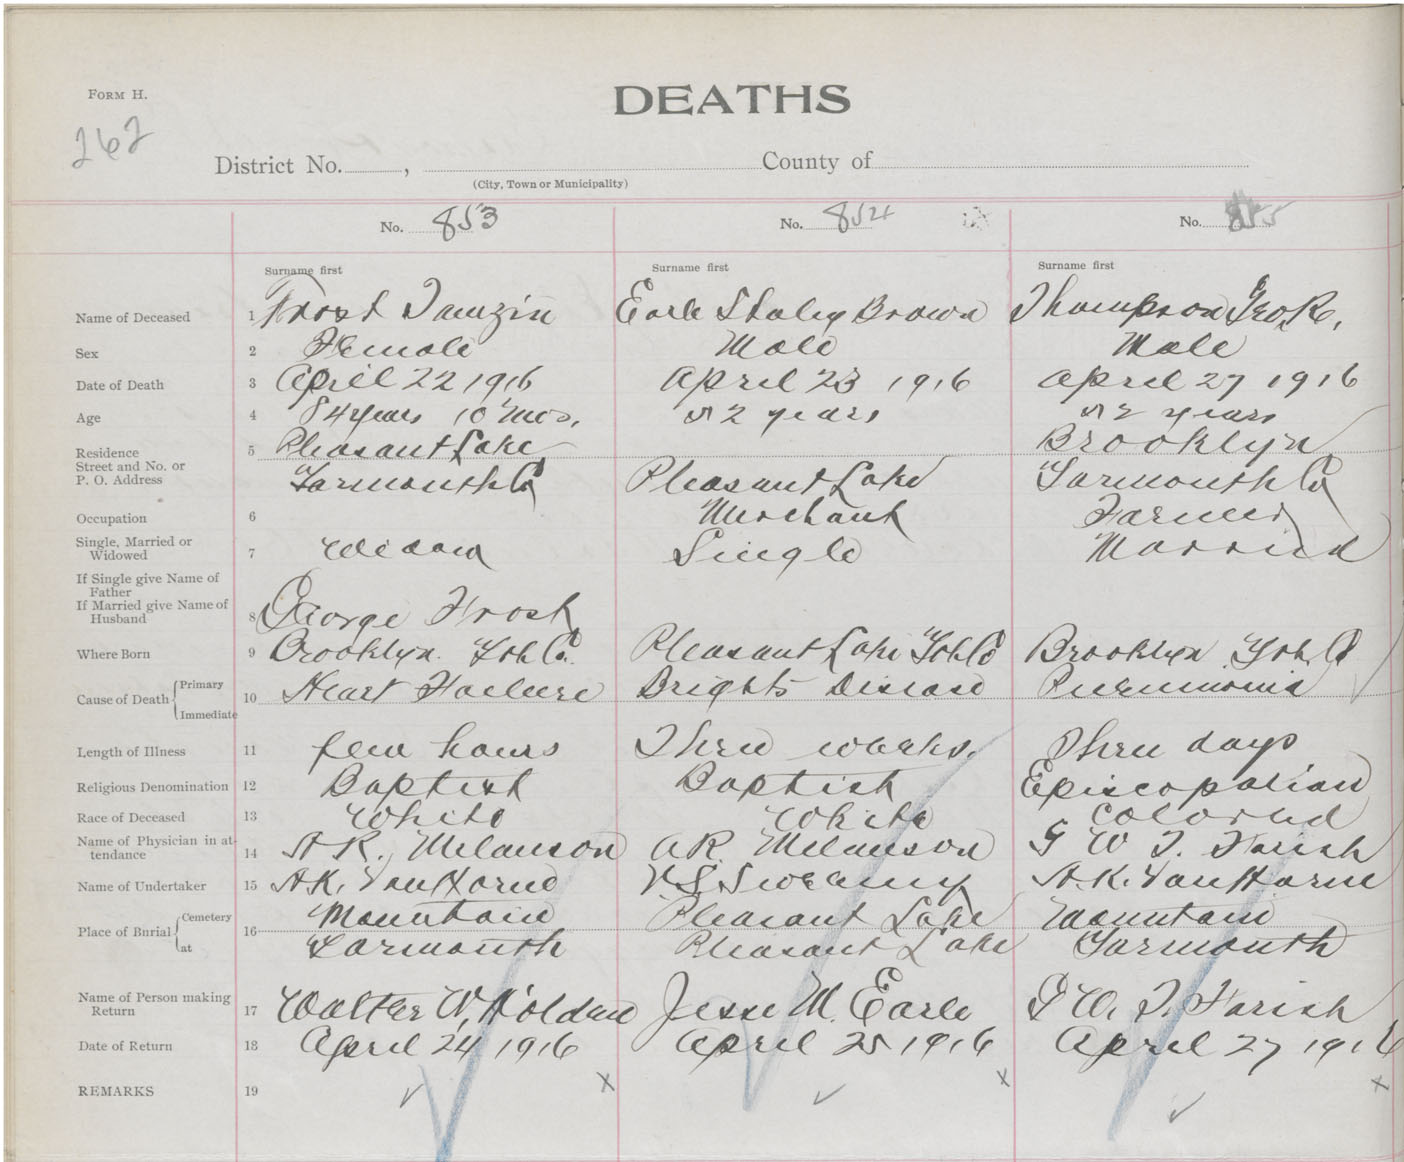 FORM H.
DEATHS
262
District No. , County of
(City, Town or Municipality)
No. 853 No. 854 No. 855
Surname first Surname first Surname first
Name of Deceased 1 Frost Tamzin Earle Staley Brown Thompson Geo. R.
Sex 2 Female Male Male
Date of Death 3 April 22 1916 April 23 1916 April 27 1916
Age 4 84 years 10 mos. 52 years 52 years
Residence 5 Pleasant Lake Brooklyn
Street and No. or
P. O. Address Yarmouth Co Pleasant Lake Yarmouth Co
Occupation 6 Merchant Farmer
Single, Married or
Widowed 7 Widow Single Married
If Single give Name of
Father
If Married give Name of
Husband 8 George Frost
Where Born 9 Brooklyn. Yoh Co. Pleasant Lake Yoh Co Brooklyn Yoh. Co
Cause of Death Primary 10 Heart Failure Brights Disease Pneumonia
Immediate
Length of Illness 11 few hours Three weeks. Three days
Religious Denomination 12 Baptist Baptist Episcopalian
Race of Deceased 13 White White Colored
Name of Physician in at-
tendance 14 A R. Melanson A R. Melanson G W T. Farish
Name of Undertaker 15 A.K. VanHorne V S Sweeny A.K. VanHorne
Place of Burial Cemetery 16 Mountain Pleasant Lake Mountain
at Yarmouth Pleasant Lake Yarmouth
Name of Person making
Return 17 Walter W. Holden Jesse M. Earle G W. T. Farish
Date of Return 18 April 24 1916 April 25 1916 April 27 1916
REMARKS 19